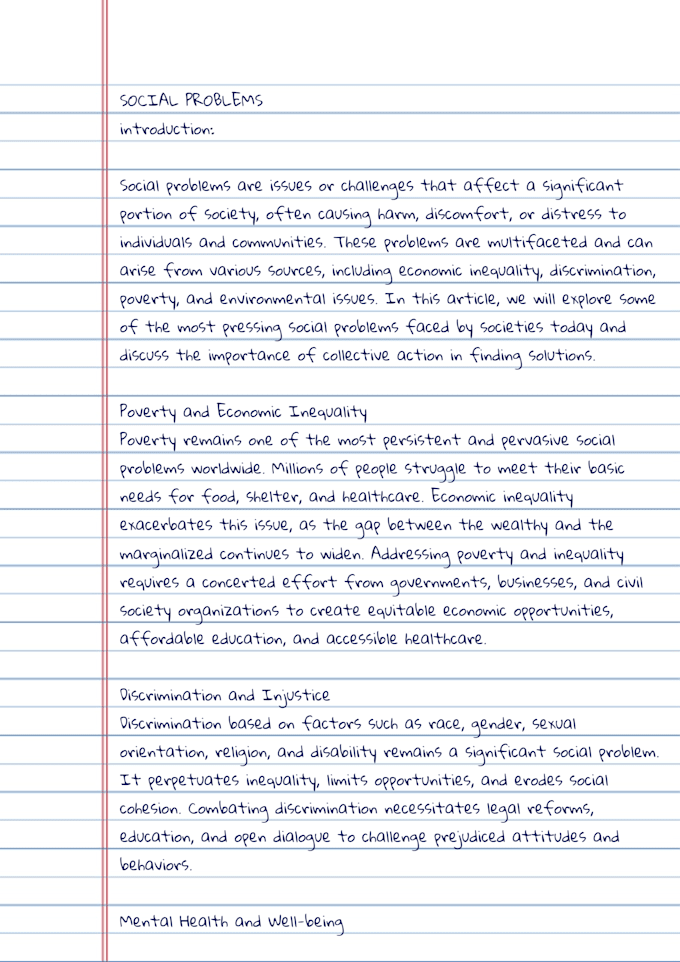 SOCIAL PROBLEMS
introduction:
Social problems are issues or challenges that affect a significant
portion of society, often causing harm, discomfort, or distress to
individuals and communities. These problems are multifaceted and can
arise from various sources, including economic inequality, discrimination,
poverty, and environmental issues. In this article, we will explore some
of the most pressing social problems faced by societies today and
discuss the importance of collective action in finding solutions.
Poverty and Economic Inequality
Poverty remains one of the most persistent and pervasive social
problems worldwide. Millions of people struggle to meet their basic
needs for food, shelter, and healthcare. Economic inequality
exacerbates this issue, as the gap between the wealthy and the
marginalized continues to widen. Addressing poverty and inequality
requires a concerted effort from governments, businesses, and civil
society organizations to create equitable economic opportunities,
affordable education, and accessible healthcare.
Discrimination and Injustice
Discrimination based on factors such as race, gender, sexual
orientation, religion, and disability remains a significant social problem.
It perpetuates inequality, limits opportunities, and erodes social
cohesion. Combating discrimination necessitates legal reforms,
education, and open dialogue to challenge prejudiced attitudes and
behaviors.
Mental Health and Well-being